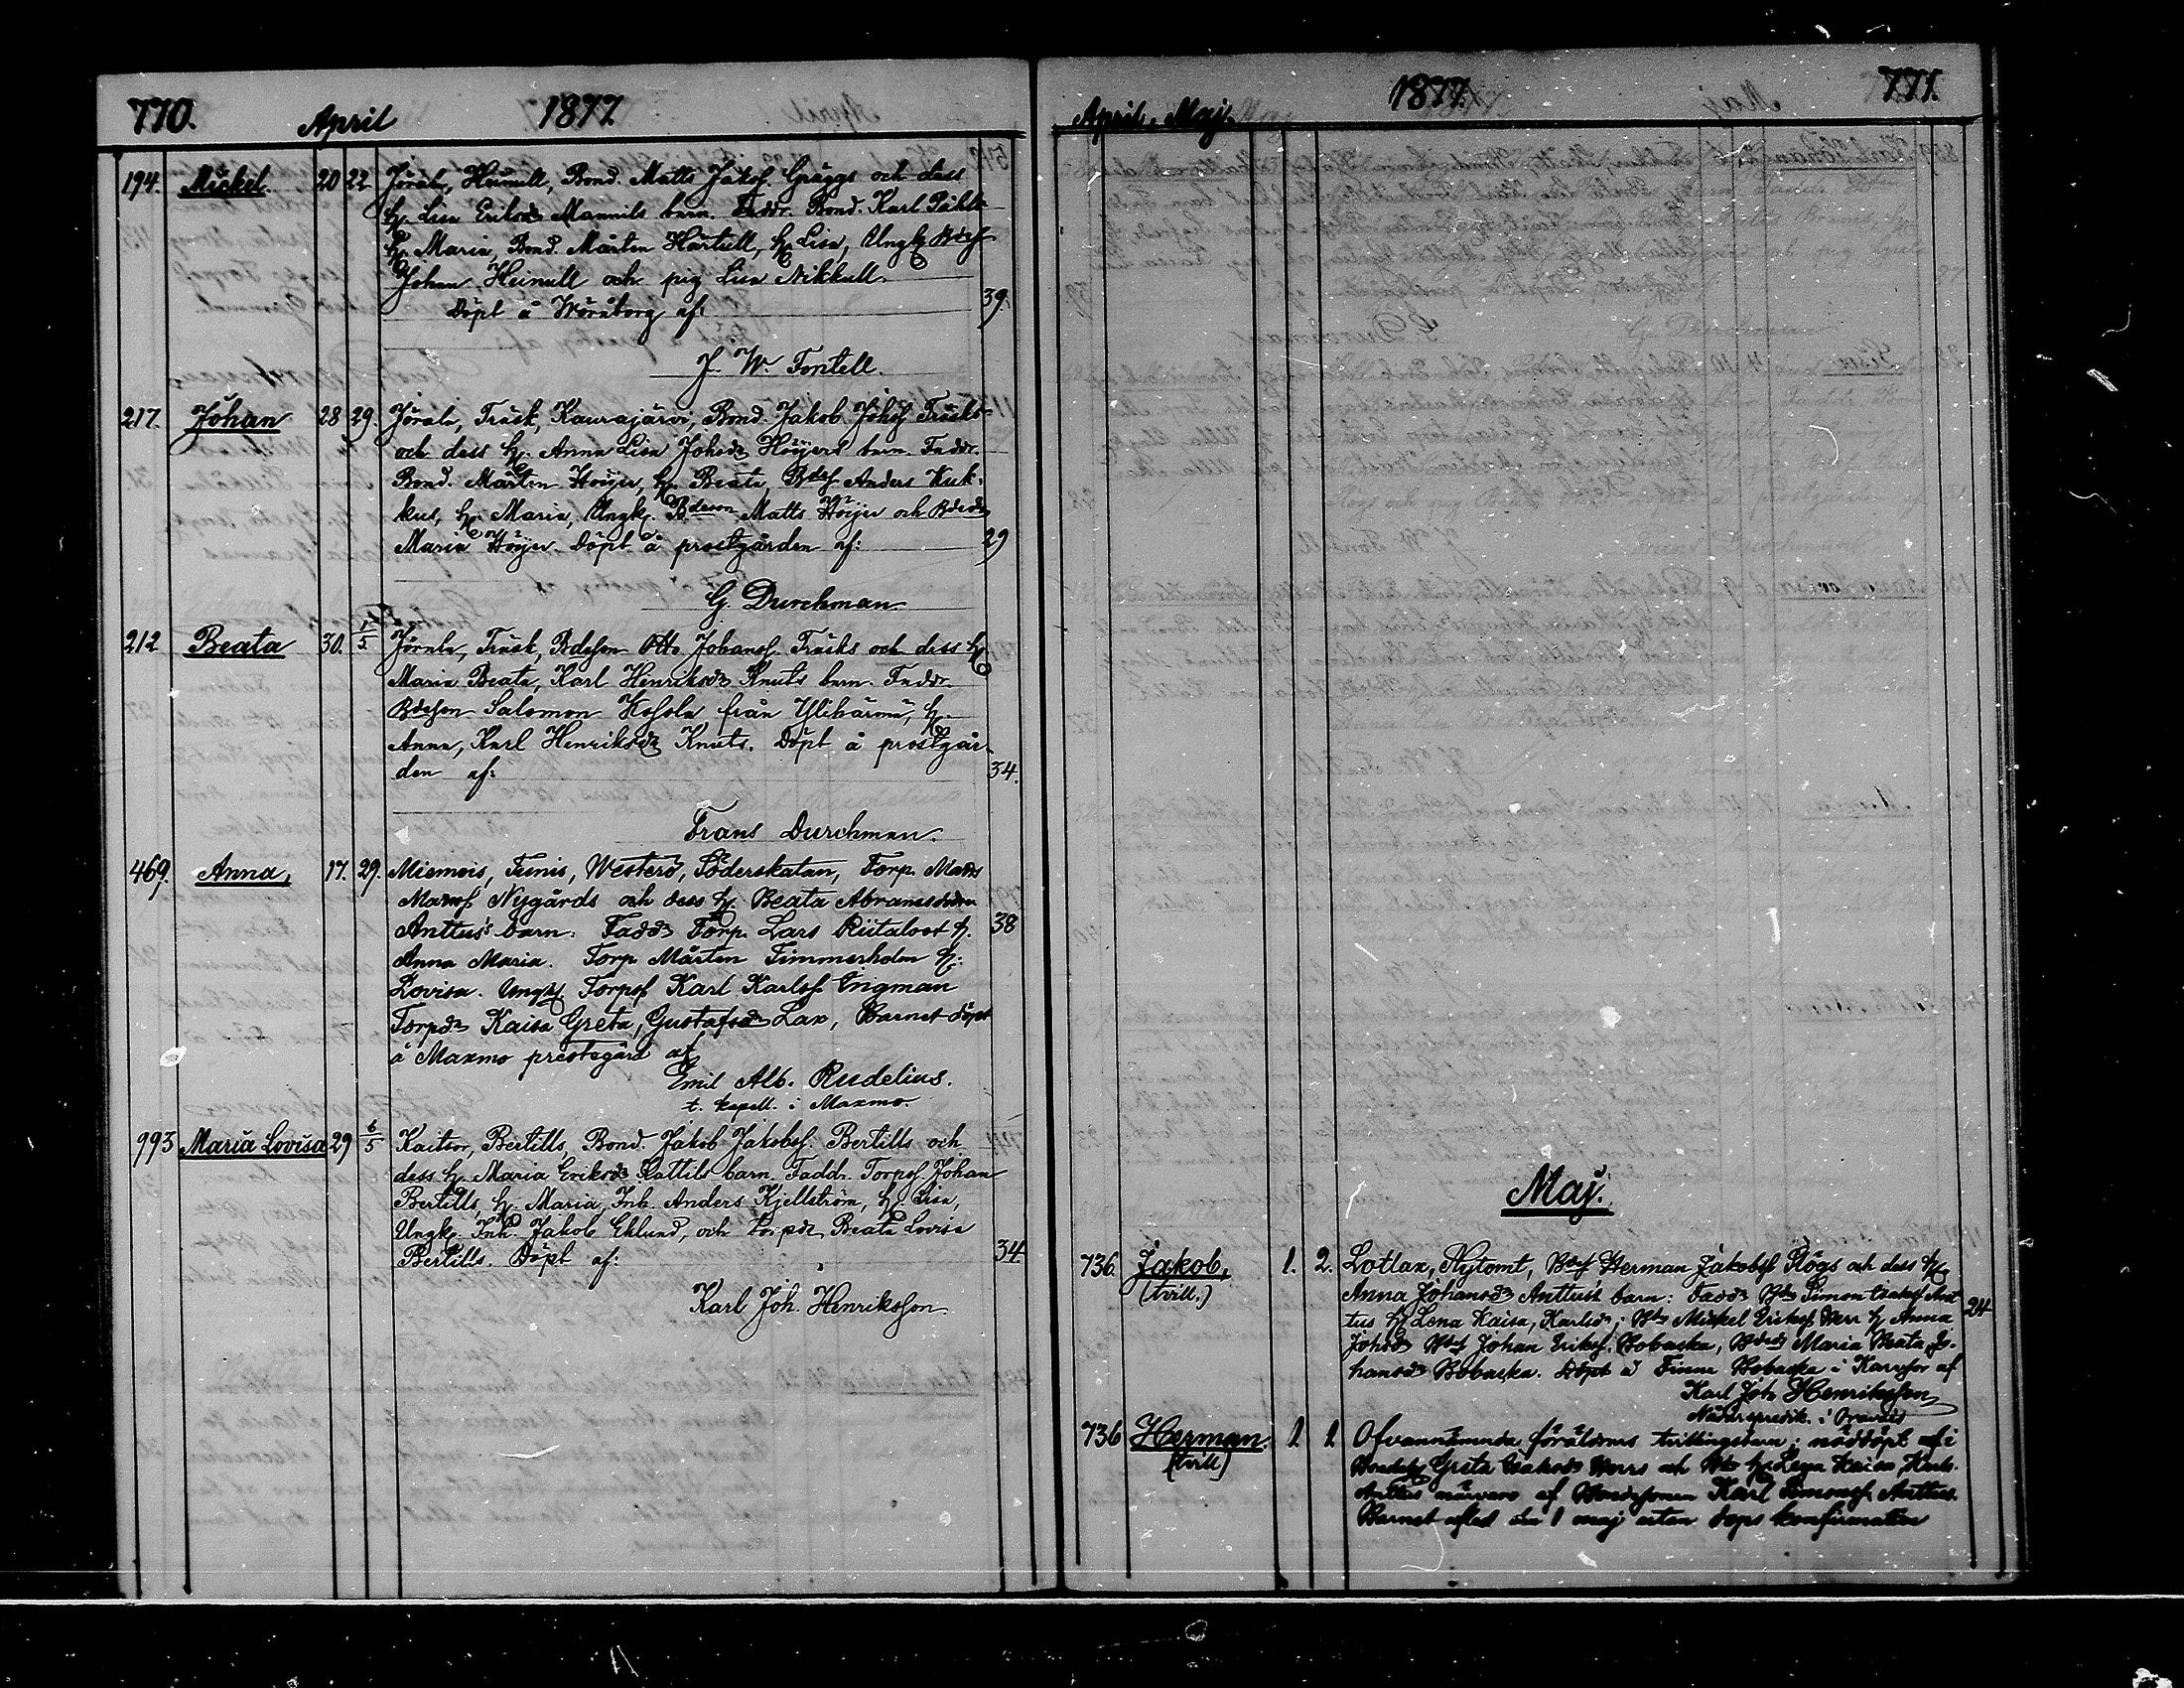 770. April 1877.
194. Mickel. 20 22 Jörala, Heinull, Bond. Matts Jakss. Gräggs och dess
h. Lisa Eriksdr Mannils barn. Faddr. Bond. Karl
h. Maria, Bond. Mårten Härtull, h. Lisa, Ungk. Bdes
Johan Heinull och pig. Lisa Nikkull.
Döpt å Wöråborg af: 39.
J. W. Fontell.
217. Johan 28 29. Jörala, Träsk, Kaurajärvi, Bond. Jakob Johss Träsks
och dess h. Anna Lisa Johsdr Höijers barn. Faddr.
Bond. Mårten Höijer, h. Beata, Bdes. Anders Kuk-
kus, h. Maria, Ungk. Bdeson Matts Höijer och Bdedr
Maria Höijer. Döpt å prostgården af: 29
G. Durchman
212 Beata 30. 1/5 Jörala, Träsk, Bdeson Otto Johanss. Träsks och dess h.
Maria Beata, Karl Henriksdr Knuts barn. Faddr.
Bdeson Salomon Kossola från Ylihärmä, h.
Anna, Karl Henriksdr Knuts. Döpt å prostgår-
den af: 34.
Frans Durchman.
469. Anna, 17. 29. Miemois, Tunis, Westerö, Söderskatan, Torp. Matts
Matss Nygårds och dess h. Beata Abramsdotter
Anttus's barn: Faddr Torp. Lars Riitaloot h. 38
Anna Maria. Torp Mårten Timmerholm h:
Lovisa. Ungk. Torpss Karl Karlss. Engman
Torpdr Kaisa Greta, Gustafsdr Lax, Barnet döpt
å Maxmo prestegård af
Emil Alb. Rudelius.
t. kapell. i Maxmo.
993 Maria Lovisa 29 6/5 Kaitsor, Bertills, Bond. Jakob Jakobss. Bertills och
dess h. Maria Eriksdr Kattils barn. Faddr. Torpss Johan
Bertills, h. Maria, Inh. Anders Kjellström, h. Lisa,
Ungk. Inh. Jakob Eklund, och torpdr Beata Lovisa
Bertills. Döpt af: 34.
Karl Joh. Henriksson.
April. Maj. 1877. 771.
Maj.
736. Jakob, 1. 2. Lotlax, Nytomt, Bdess Herman Jakobss Slögs och dess h.
(tvill.) Anna Johansdr Anttus's barn: Faddr Simon Ant-
tus h. Lena Kaisa, Karlsdr; Mickel Erikss h. Anna 24
Johsdr Johan Erikss. Bobacka, Maria Beata Jo-
hansdr Bobacka. Döpt å Finne Bobacka i Karvsor af
Karl Joh Henriksson
Nådårspredik. i Oravais
736 Herman. 1 1 Ofvannämnda föräldrars tvillingbarn; nöddöpt af
(tvill) Greta och h. Lena Kaisa
Anttus närvaro af Bondesonen Karl Simonss Anttus.
Barnet afled den 1 maj utan dops konfirmation